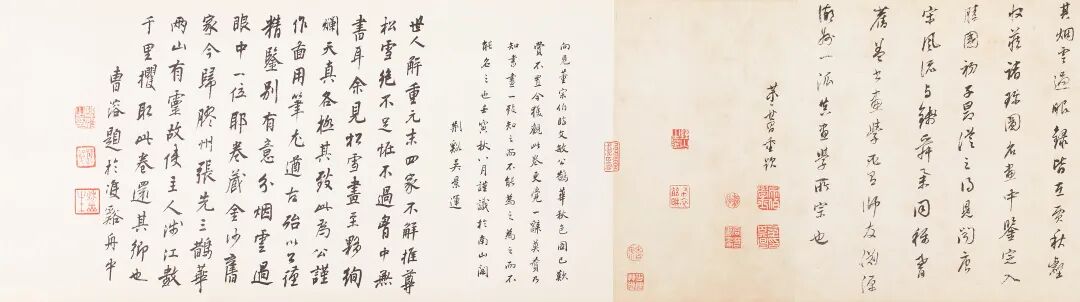 其烟雲過眼錄皆互賈秋壑
收藏諸珍圖名畫中鑒定入
勝國初子昂從之得見聞唐
宋風流與錢舜舉同稱耆
舊蓋書畫學必有師友淵源
湖州一派真畫學所宗也
董其昌重跋
向見董宗伯臨文敏公鵲華秋色圖已歎
賞不置今獲觀此卷更覺一辭莫贊乃
知書畫一致知之而不能為之為之而不
能名之也壬寅秋八月謹識於南山閣
荊谿吳景運
世人解重元末四家不解推尊
松雪絕不足怪不過胷中無
書耳余見松雪畫至夥絢
爛天真各極其致此為公謹
作用筆尤遒古殆以公謹
精鑒別有意分烟雲過
眼中一位耶卷藏金沙舊
家今歸膠州張先三鵲華
兩山有靈故使主人涉江數
千里攫取此卷還其鄉也
曹溶題於渡谿舟中